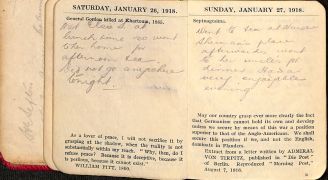 SATURDAY, JANUARY 26, 1918.
General Gordon killed at Khartoum, 1885.
Met Clara S. at
lunch time too went
to her home for
afternoon tea.
Did not go anywhere
tonight.
As a lover of peace, I will not sacrifice it by
grasping at the shadow, when the reality is not
substantially within my reach. "Why, then, do I
refuse peace? Because it is deceptive, because it
is perilous, because it cannot exist."
WILLIAM PITT, 1800.
SUNDAY, JANUARY 27, 1918.
Septuagesima.
Went to tea at
place
afterwards went
to her
dinner. Had a
very enjoyable
evening.
May our country grasp ever more clearly the fact
that Germanism cannot hold its own and develop
unless we secure by means of this war a position
superior to that of the Anglo-Americans. We shall
secure this position if we, and not the English,
dominate in Flanders.
Extract from a letter written by ADMIRAL
VON TIRPITZ, published in "Die Post"
of Berlin. Reproduced "Morning Post,"
August 7, 1916.